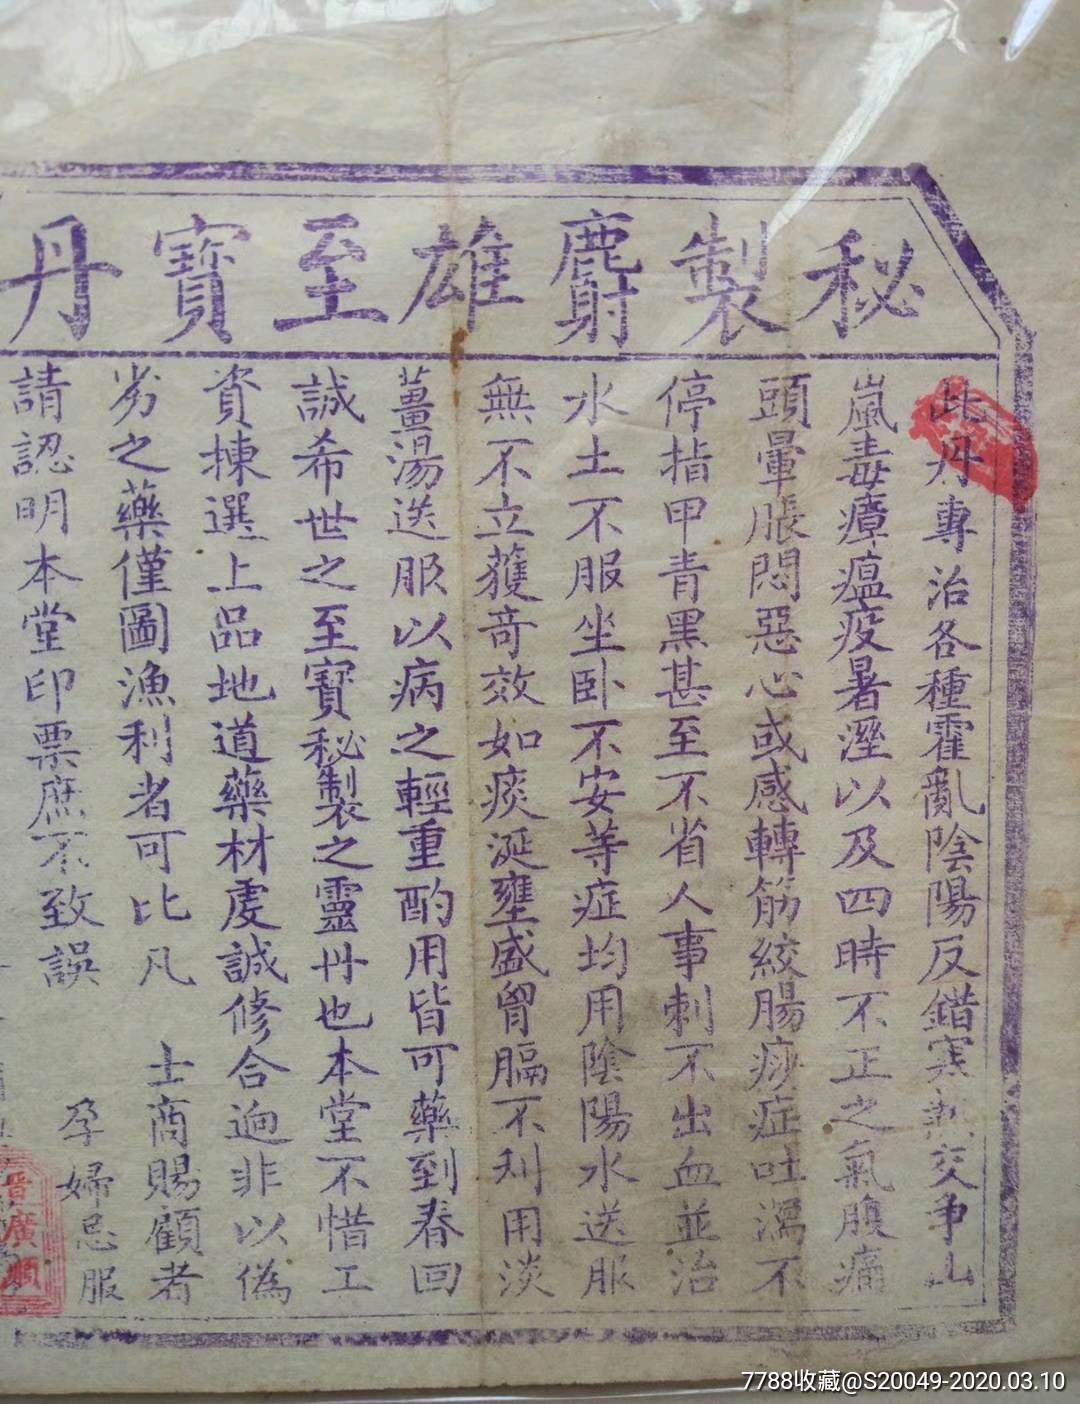 秘製麝雄至寶丹
此丹專治各種霍亂陰陽反錯寒熱交争山
嵐毒瘴瘟疫暑溼以及四時不正之氣腹痛
頭暈脹悶惡心或感轉筋絞腸痧症吐瀉不
停指甲青黑甚至不省人事刺不出血並治
水土不服坐卧不安等症均用陰陽水送服
無不立獲奇效如痰涎壅盛胷膈不利用淡
薑湯送服以病之輕重酌用皆可藥到春回
誠希世之至寶秘製之靈丹也本堂不惜工
資揀選上品地道藥材虔誠修合逈非以偽
劣之藥僅圖漁利者可比凡 士商賜顧者
請認明本堂印票庶不致誤 孕婦忌服
晋廣順
7788收藏@S20049-2020.03.10